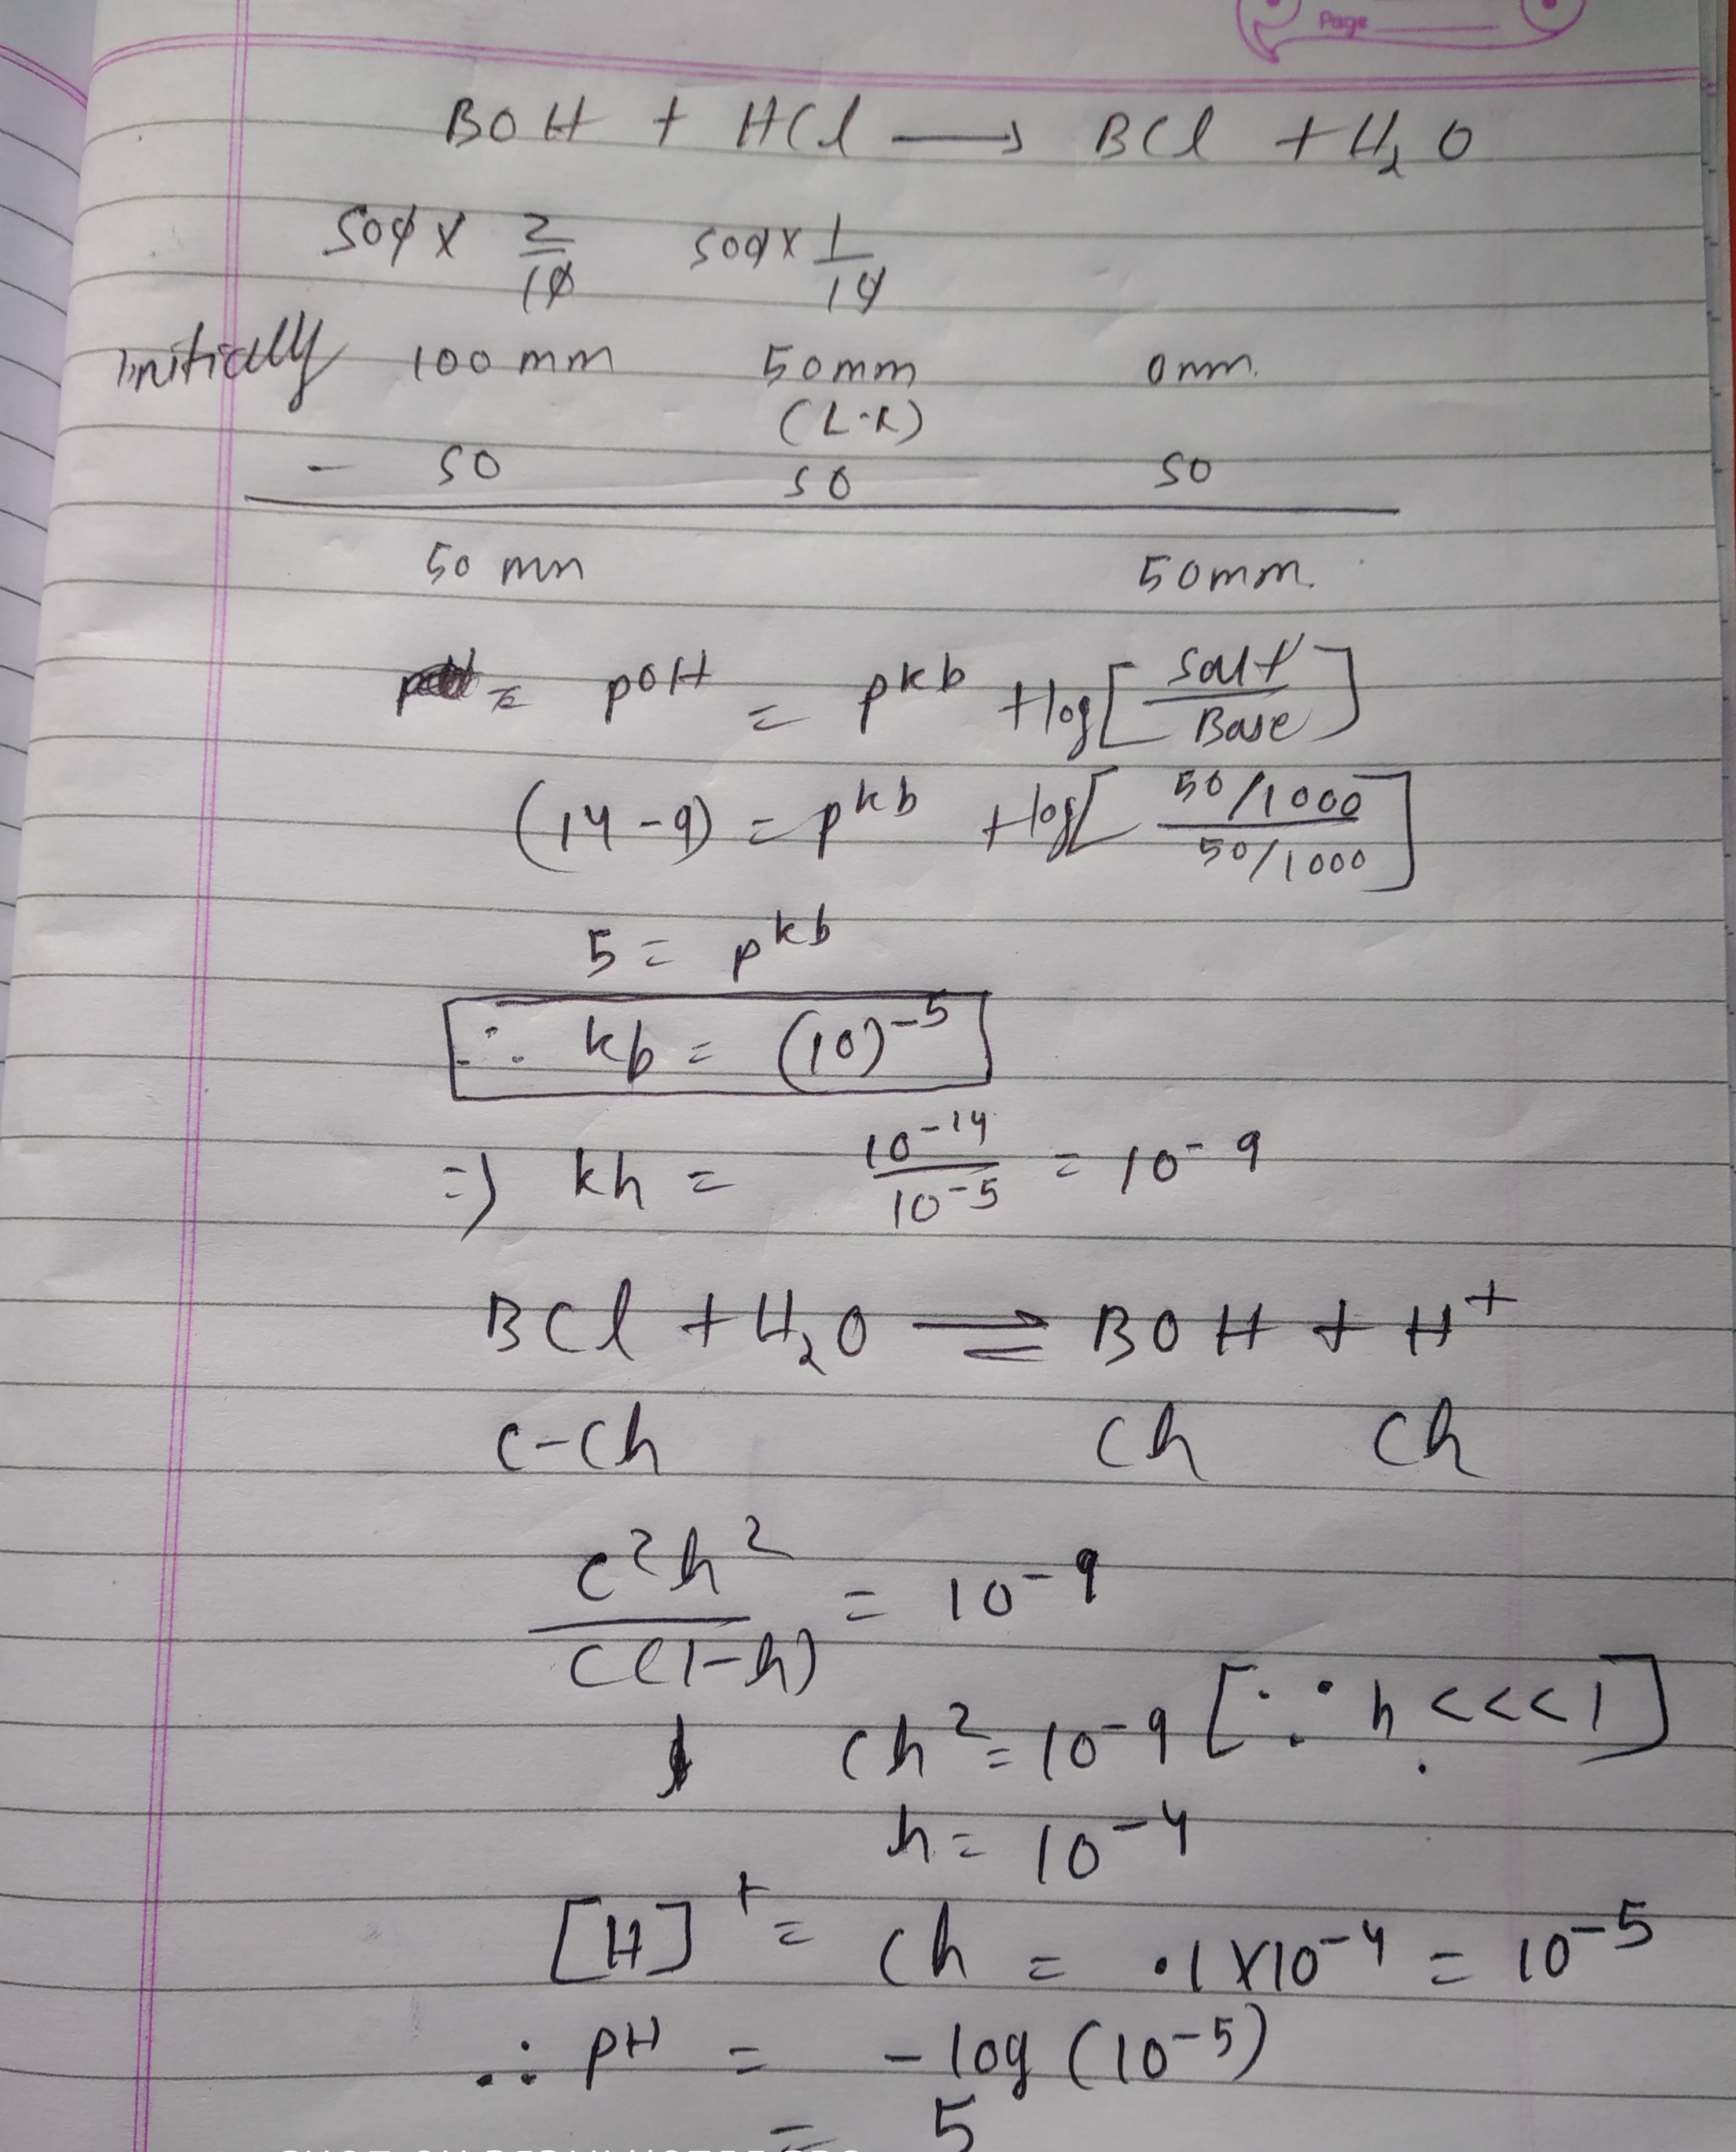 Page
BOH + HCl → BCl + H₂O
500 × 2/10 500 × 1/10
initially 100 mm 50mm 0mm.
(L.R)
- 50 50 50
50 mm 50mm.
= pOH = pkb + log[Salt/Base]
(14-9) = pkb + log[50/1000 / 50/1000]
5 = pkb
∴ kb = (10)⁻⁵
=) kh = 10⁻¹⁴/10⁻⁵ = 10⁻⁹
BCl + H₂O ⇌ BOH + H⁺
C-Ch Ch Ch
c²h²/C(1-h) = 10⁻⁹
Ch² = 10⁻⁹ [∵ h <<< 1]
h = 10⁻⁴
[H]⁺ = Ch = .1×10⁻⁴ = 10⁻⁵
∴ pH = -log (10⁻⁵)
= 5